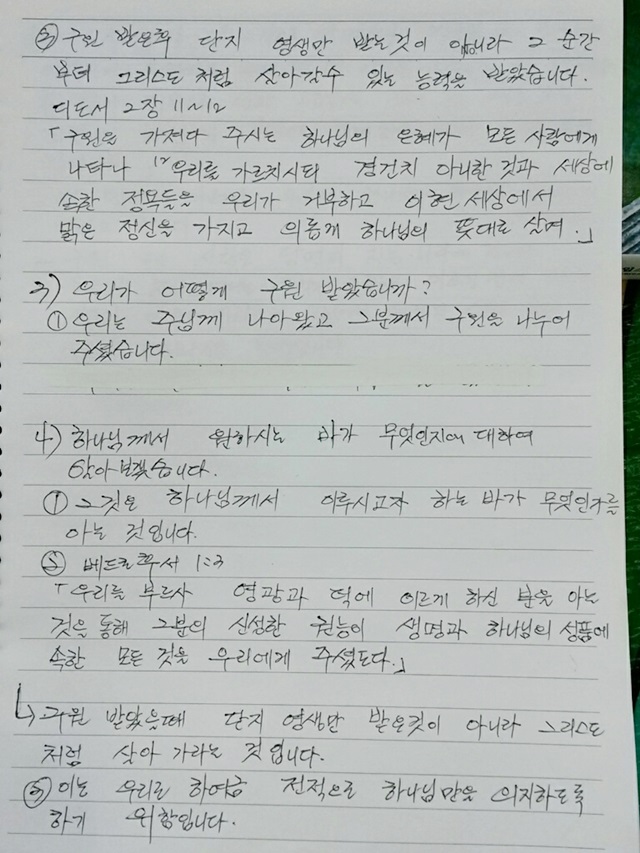 ② 구원 받은후 단지 영생만 받는것이 아니라 그 순간
부터 그리스도 처럼 살아갈수 있는 능력을 받았습니다.
디도서 2장 11~12
「구원을 가져다 주시는 하나님의 은혜가 모든 사람에게
나타나 12 우리를 가르치시되 경건치 아니한 것과 세상에
속한 정욕들을 우리가 거부하고 이현 세상에서
맑은 정신을 가지고 의롭게 하나님의 뜻대로 살며.」
3) 우리가 어떻게 구원 받았습니까?
① 우리는 주님께 나아왔고 그분께서 구원을 나누어
주셨습니다.
4) 하나님께서 원하시는 바가 무엇인지에 대하여
알아보겠습니다.
① 그것은 하나님께서 이루시고자 하는 바가 무엇인가를
아는 것입니다.
② 베드로후서 1:3
「우리를 부르사 영광과 덕에 이르게 하신 분을 아는
것을 통해 그분의 신성한 권능이 생명과 하나님의 성품에
속한 모든 것을 우리에게 주셨도다.」
↳ 구원 받았을때 단지 영생만 받은것이 아니라 그리스도
처럼 살아 가라는 것입니다.
③ 이는 우리로 하여금 전적으로 하나님만을 의지하도록
하기 위함입니다.